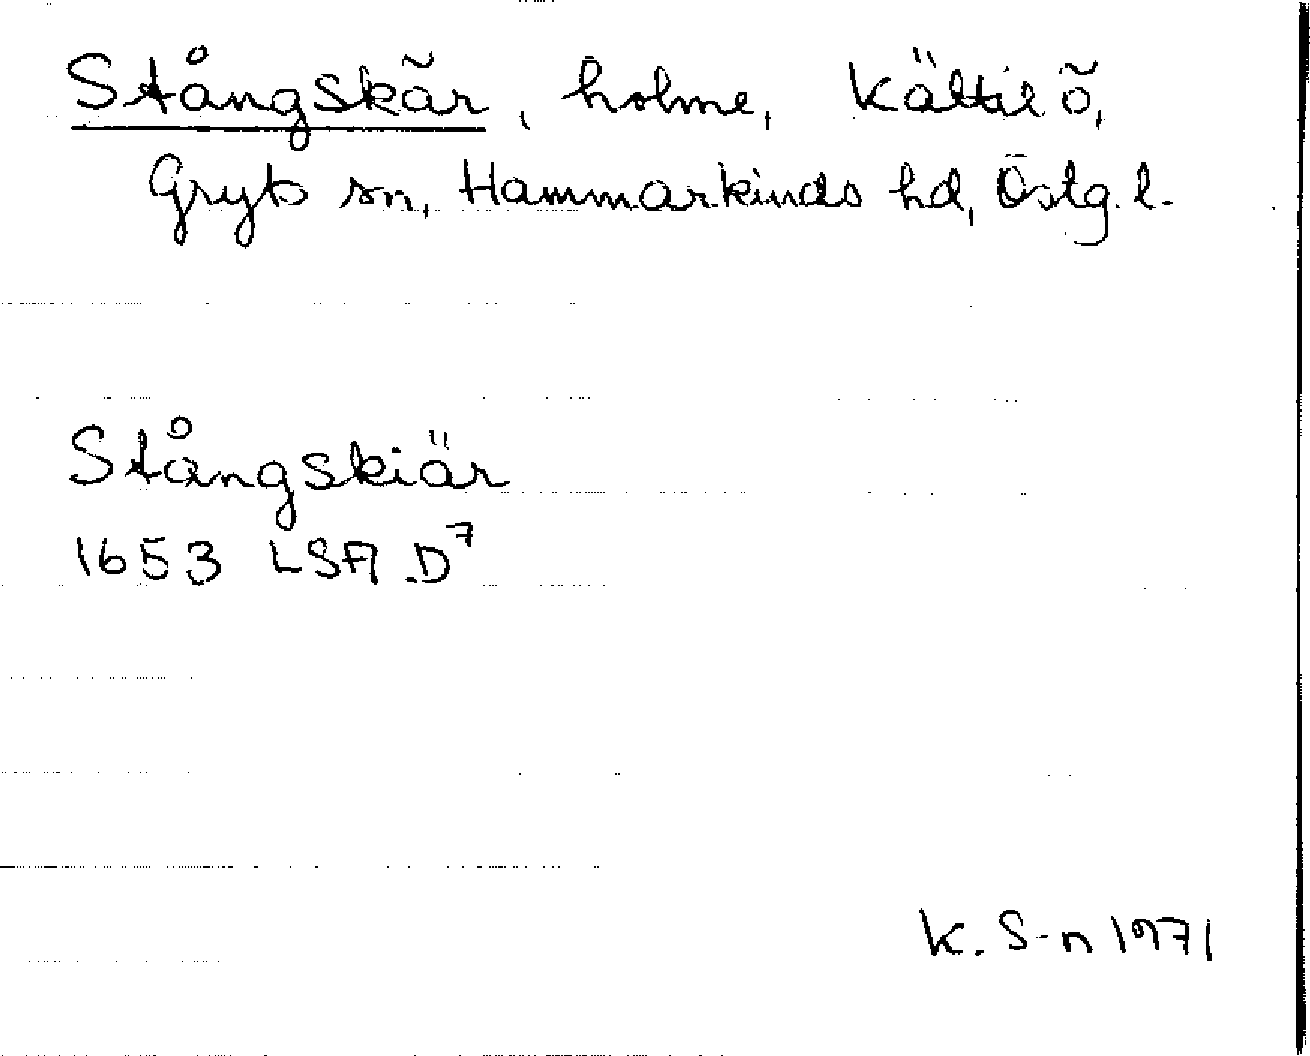 Stångskär, holme, Kättilö,
Gryts sn, Hammarkinds hd, Östg. l.
Stångskiär
1653 LSA D⁷
K. S-n 1971